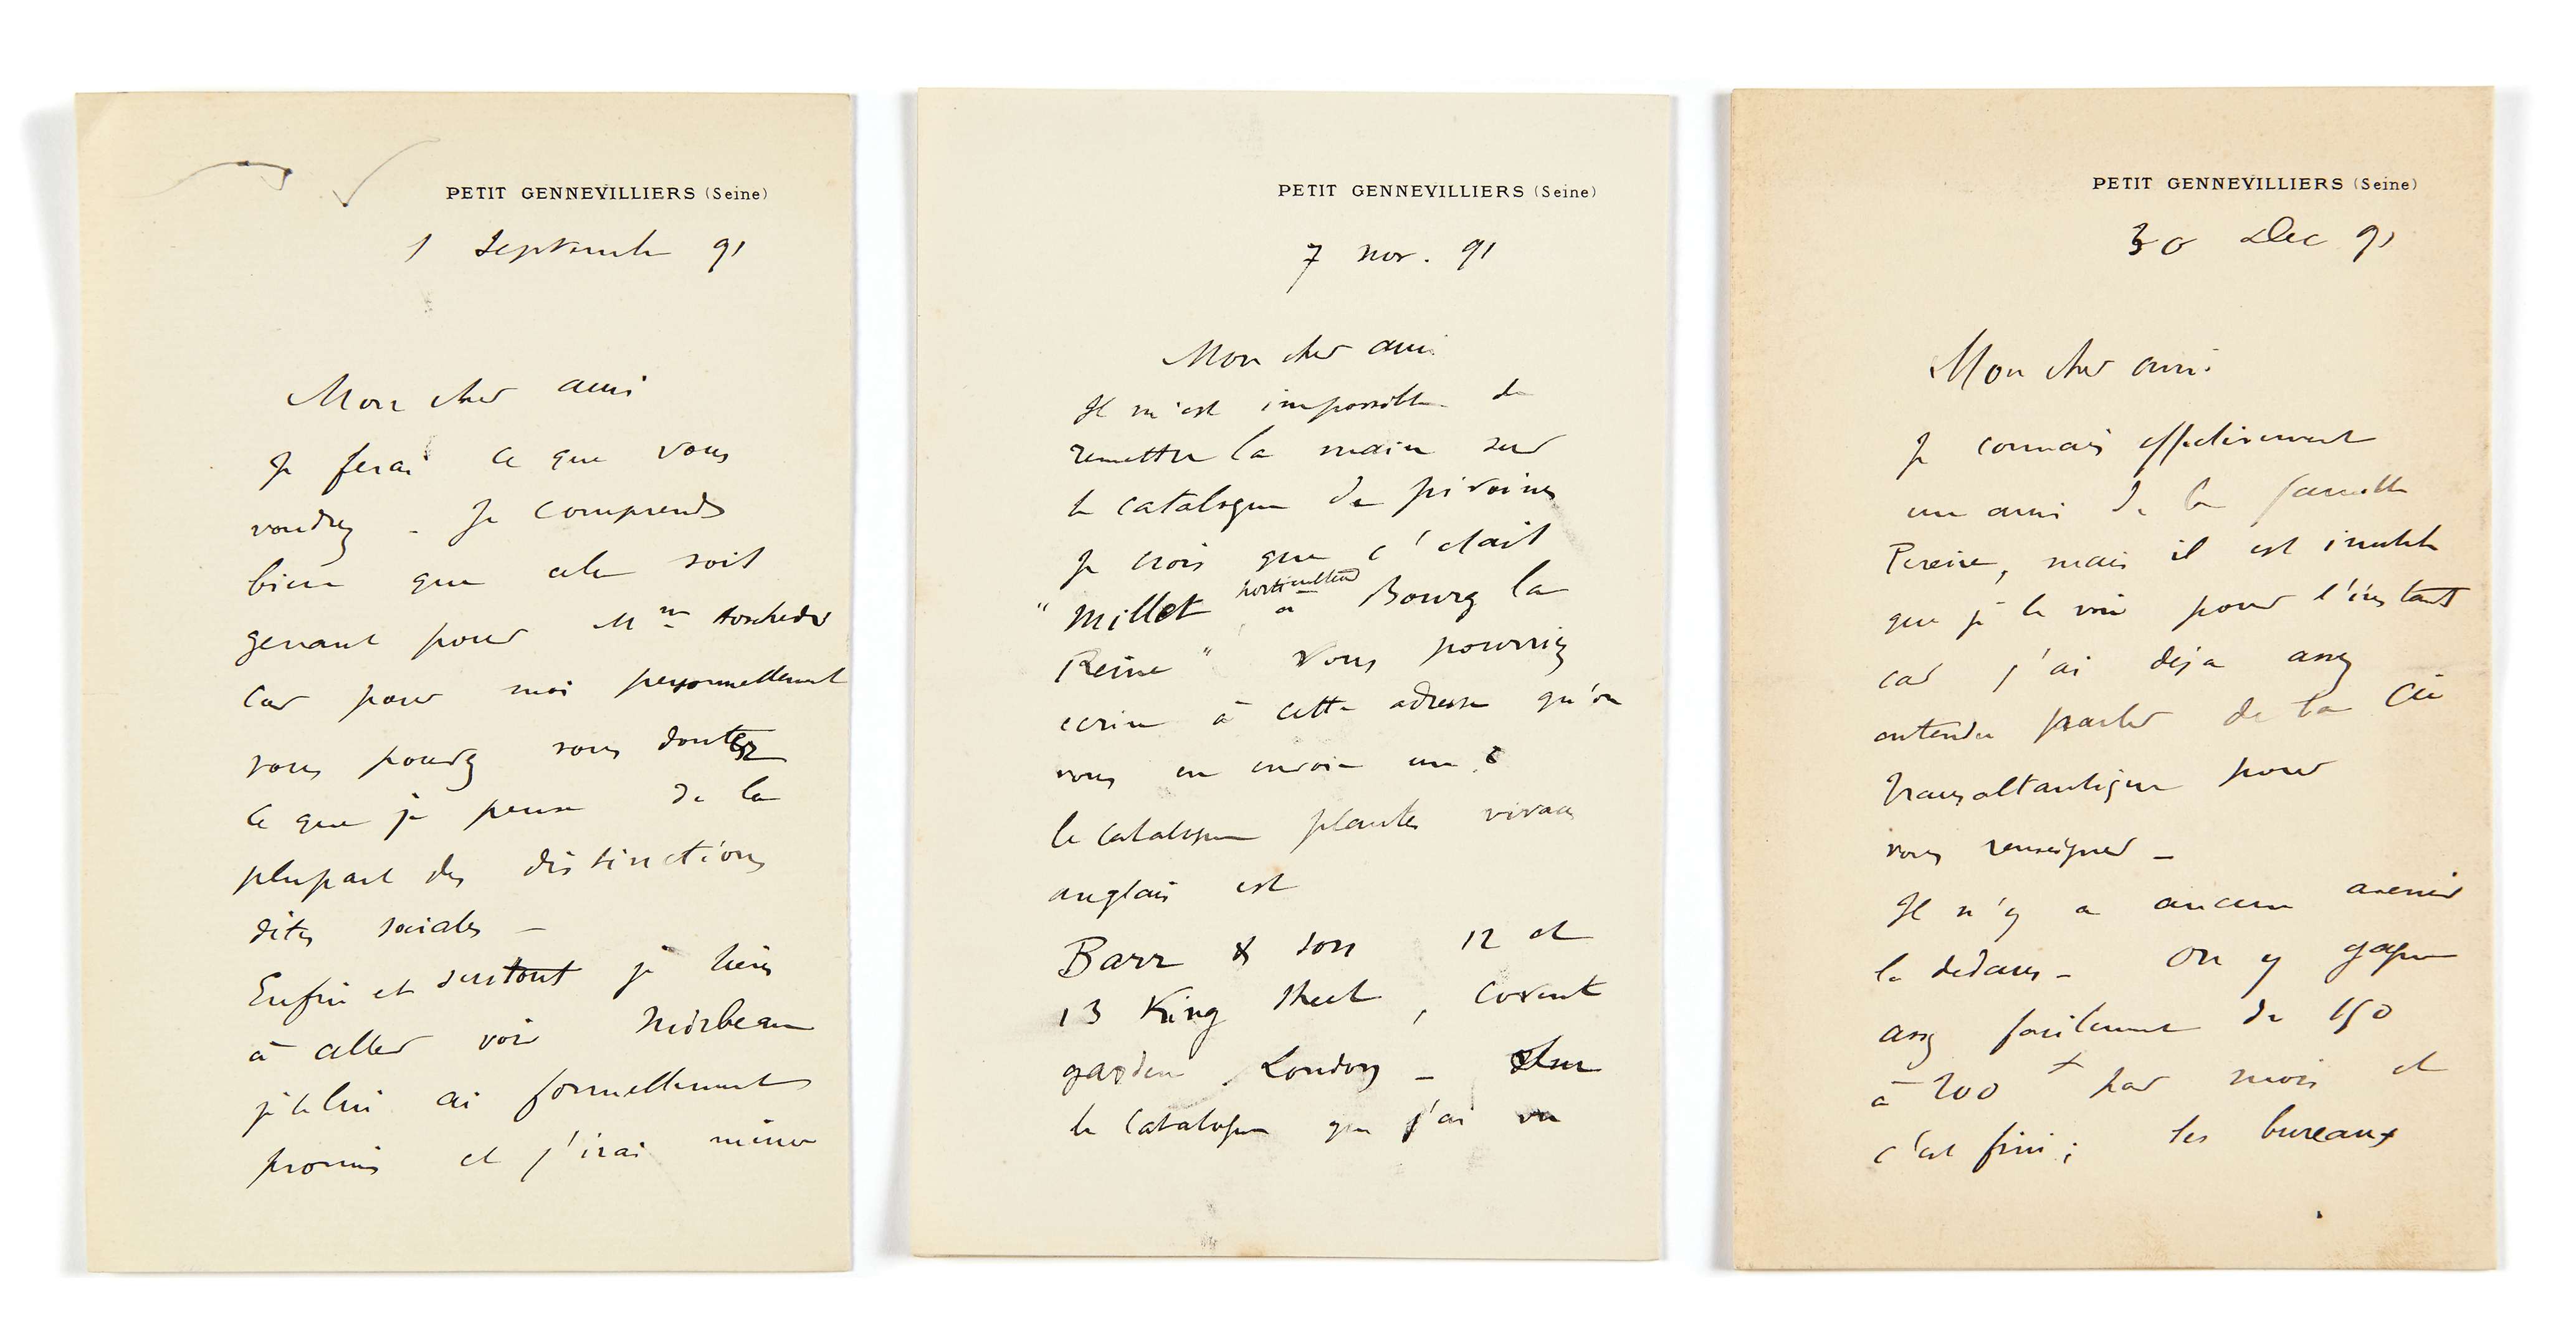 PETIT GENNEVILLIERS (Seine)
1 Septembre 91
Mon cher ami
Je ferai ce que vous
voudrez - Je comprends
bien que cela soit
genant pour Mme Hoschedé
Car pour moi personnellement
vous pouvez vous doutez
ce que je pense de la
plupart des distinctions
dites sociales -
Enfin et surtout je tiens
à aller voir Mirbeau
je le lui ai formellement
promis et j'irai même
PETIT GENNEVILLIERS (Seine)
7 nov. 91
Mon cher ami
Il m'est impossible de
remettre la main sur
le catalogue de pivoines
Je crois que c'était
"Millet horticulteur à Bourg la
Reine" Vous pourriez
ecrire à cette adresse qu'on
vous en envoie un
le catalogue plantes vivaces
anglais est
Barr & son 12 et
13 King Street, Covent
garden London - Sur
le catalogue que j'ai vu
PETIT GENNEVILLIERS (Seine)
30 Dec 91
Mon cher ami
Je connais effectivement
un ami de la famille
Pereire, mais il est inutile
que je le voie pour l'instant
car j'ai déja assez
entendu parler de la Cie
transaltantique pour
vous renseigner -
Il n'y a aucun avenir
la dedans - On y gagne
assez facilement de 150
à 200 f par mois et
c'est fini ; les bureaux